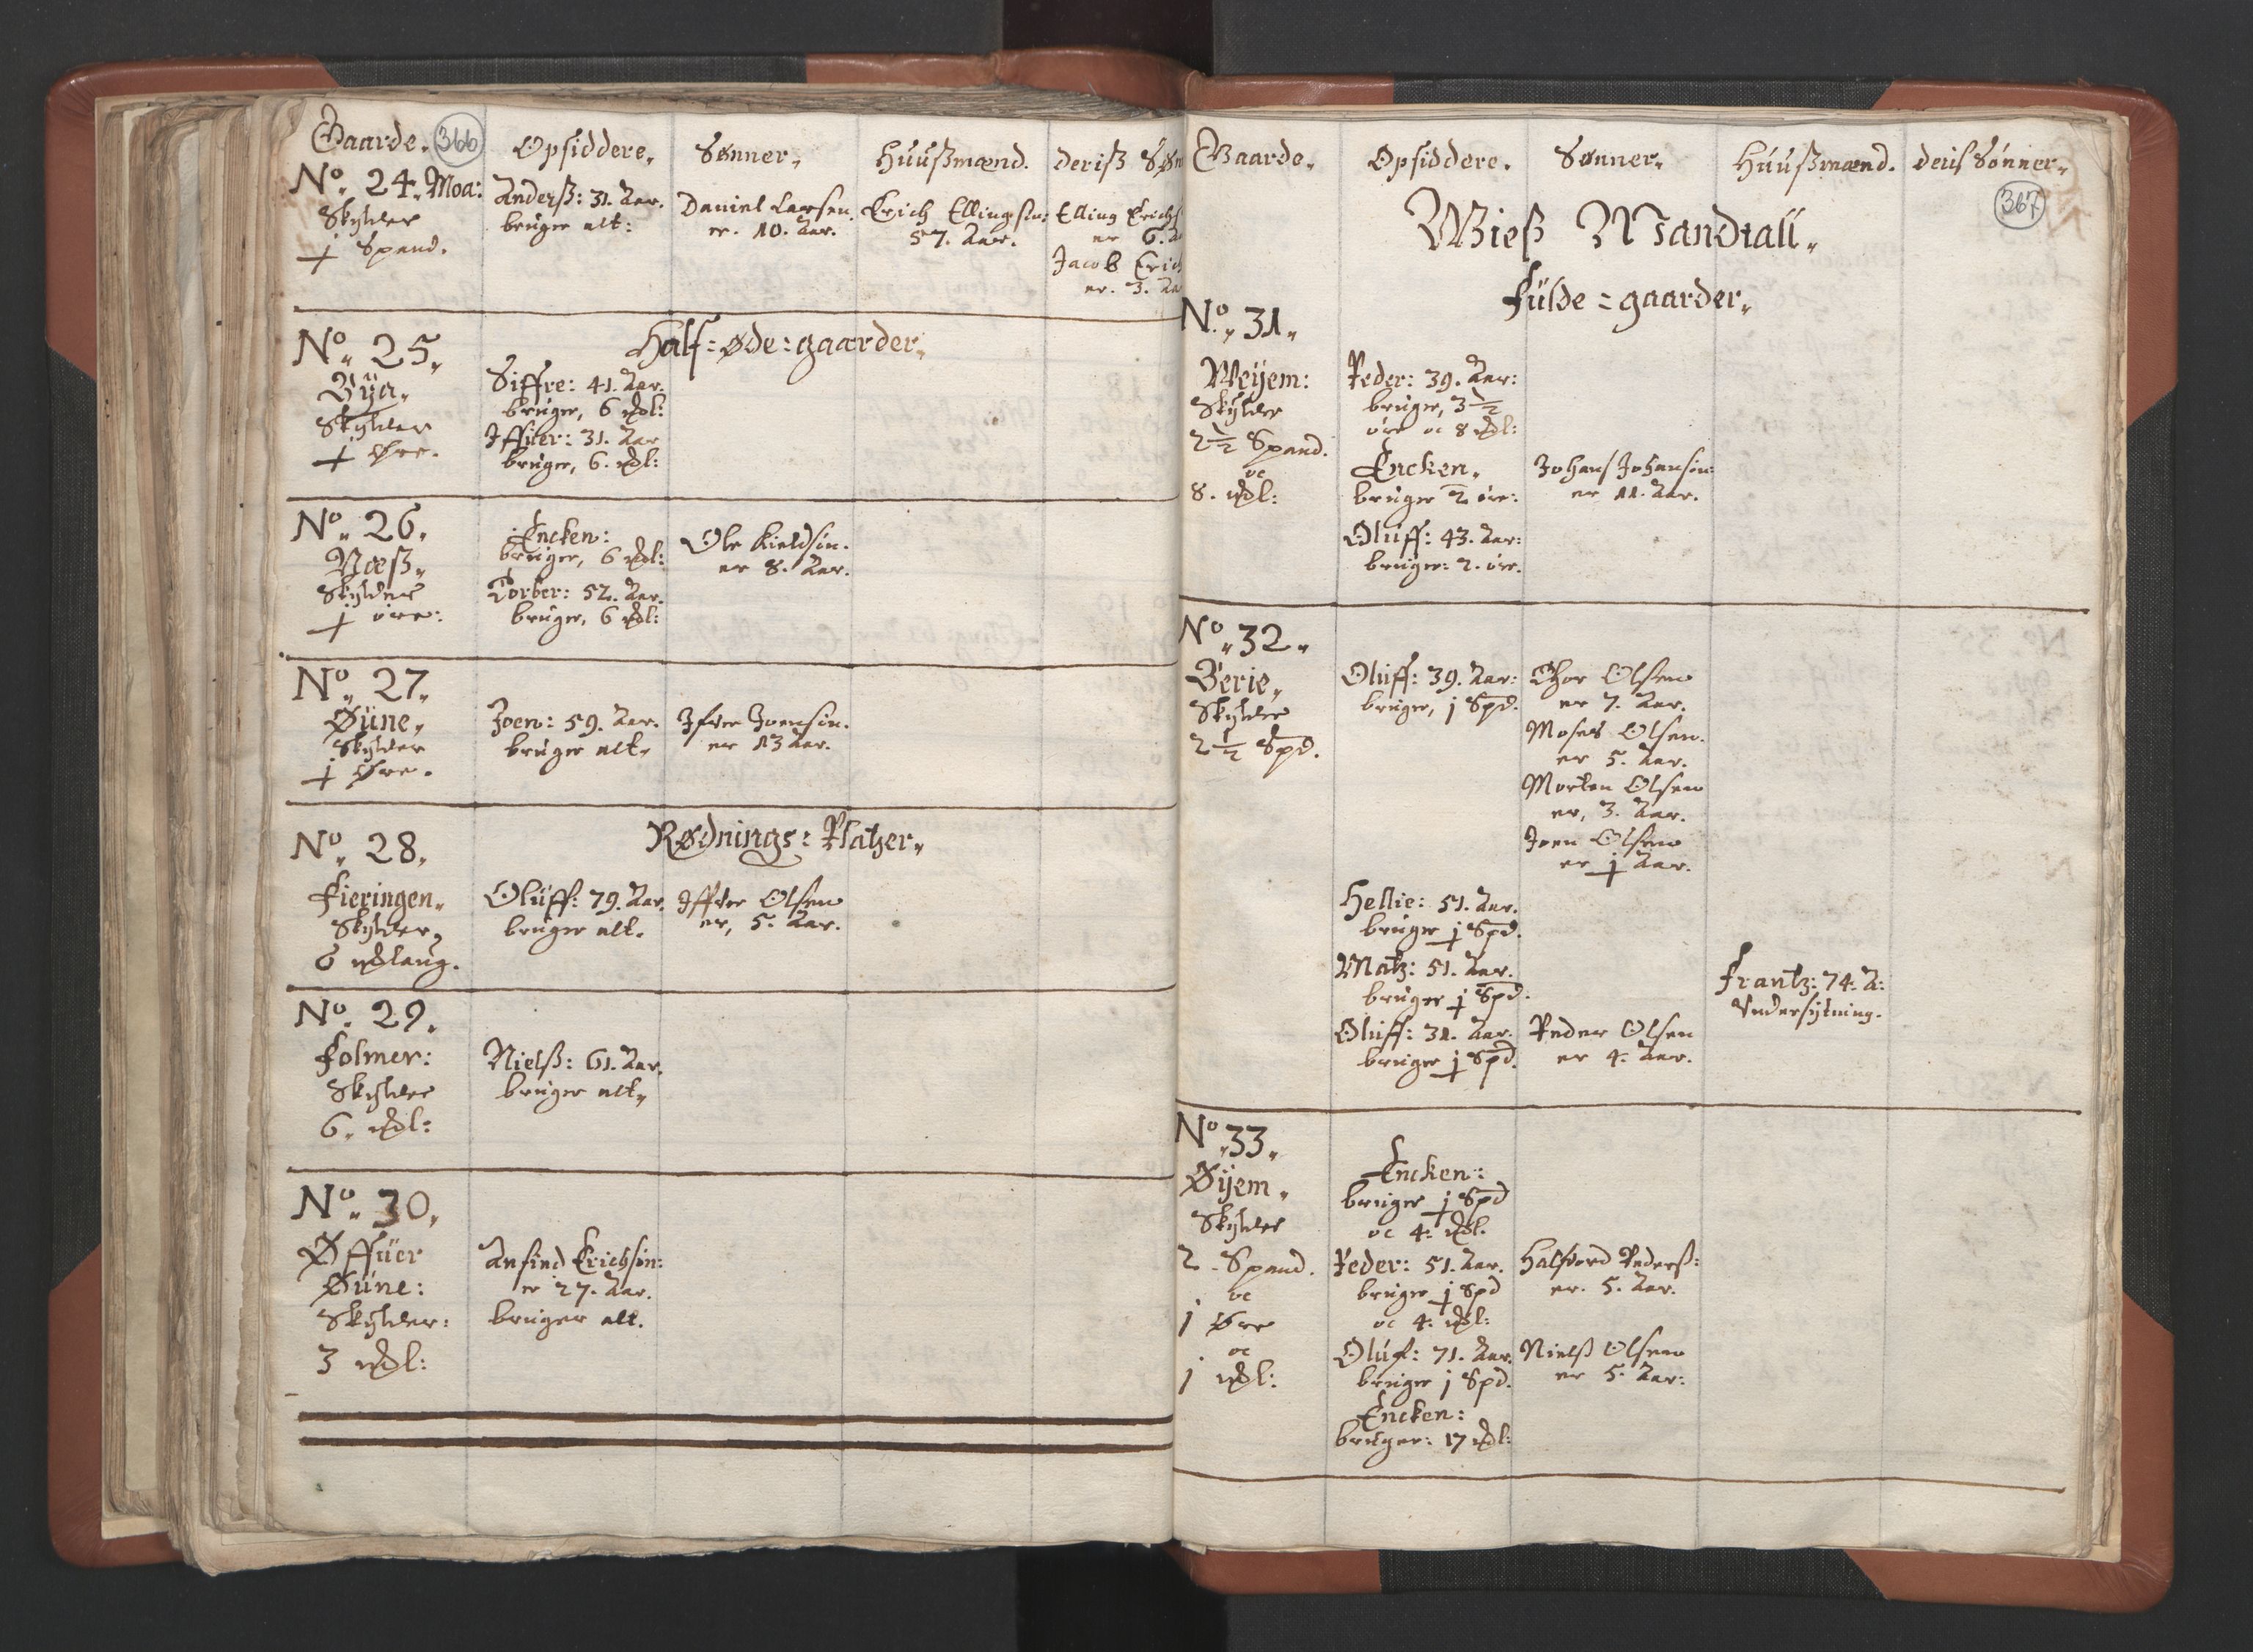 Gaarde. 366
Opsiddere.
Sønner.
Huußmænd.
Deriß Søn
No. 24. Moa:
Skylder
j Spand.
Anderß: 31. Aar.
bruger alt:
Daniel Larsen.
er. 10. Aar.
Erich Ellingsøn:
57. Aar.
Elling Erichs
er 6. A
Jacob Erich
er. 3. Aa
Half=øde=gaarder.
No. 25.
Bÿa.
Skylder
j Øre.
Siffre: 41. Aar.
bruger, 6 mdl:
Iffuer: 31. Aar
bruger, 6. mdl:
No. 26.
Næß.
Skylder
j øre:
Encken:
bruger, 6 mdl:
Torber: 52. Aar.
bruger, 6 mdl:
Ole Kieldsøn.
er 8. Aar.
No. 27.
Øüne.
Skylder
j Øre.
Joen: 59. Aar.
bruger alt.
Ifver Joensøn.
er 13 Aar.
Rødnings=Platzer.
No. 28.
Fieringen.
Skylder,
6 mdlaug.
Olüff: 79. Aar.
bruger alt.
Iffver Olsen
er, 5. Aar.
No. 29.
Folmer:
Skylder
6. mdl:
Nielß: 61. Aar.
bruger alt.
No. 30.
Øffüer
Øüne:
Skylder:
3 mdl:
Anfind Erichsøn:
er 27. Aar.
bruger alt.
Gaarde.
Opsiddere.
Sønner.
Huußmænd.
deris Sønner.
367
Wieß Mandtall.
Fülde=gaarder.
No. 31.
Weÿem:
Skylder
2½ Spand.
oc
8. mdl:
Peder: 39. Aar:
bruger, 3½
øre oc 8 mdl:
Encken.
bruger 2 øre:
Johans Johansøn:
er 11. Aar.
Oluff: 43. Aar:
bruger: 2. øre.
No. 32.
Berie.
Skylder
2½ Spd.
Oluff: 39. Aar:
bruger, j Spd.
Thor Olsen
er 7. Aar.
Moses Olsen.
er 5. Aar.
Morten Olsen
er, 3. Aar.
Joen Olsen
er j Aar.
Hellie: 51. Aar.
bruger j Spd.
Matz: 51. Aar.
bruger j Spd.
Frantz: 74. A:
Vndersytning.
Oluff: 31. Aar.
bruger j Spd.
Peder Olsen
er 4. Aar.
No. 33.
Øÿem.
Skylder
2. Spand.
oc
j Øre
oc
j mdl:
Encken:
bruger j Spd
oc 4. mdl.
Peder: 51. Aar.
bruger j Spd
oc 4. mdl:
Halfvord Pederß:
er. 5. Aar.
Oluf: 71. Aar.
bruger j Spd.
Nielß Olsen
er 5. Aar:
Encken:
bruger: 17 mdl: